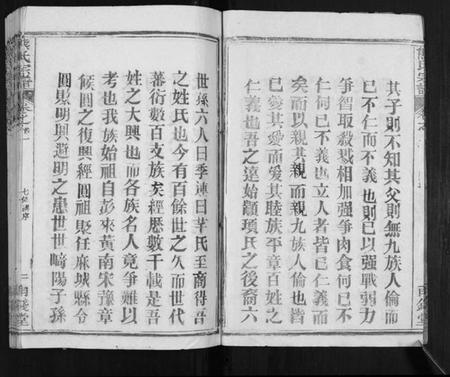 其子則不知其父則無九族人倫而
已不仁而不義也則已以强戰弱力
爭智取殺戮相加强爭肉食何已不
仁何已不義也立人者皆已仁義而
矣而以親其親而親九族人倫也皆
已愛其愛而愛其睦族平章百姓之
仁義也吾之遠始顓頊氏之後裔六
世孫六人曰季連曰芈氏至商得吾
之姓氏也今有百餘世之久而世代
蕃衍數百支族矣經歷數千載是吾
姓之大興也而各族名人竟爭難以
考也我族始祖自彭來黃南宋豫章
候圓之復興經圓祖聚任麻城縣令
圓賜明興避明之患世世崎陽子孫
熊氏宗譜
卷之首一
七修譜序
二